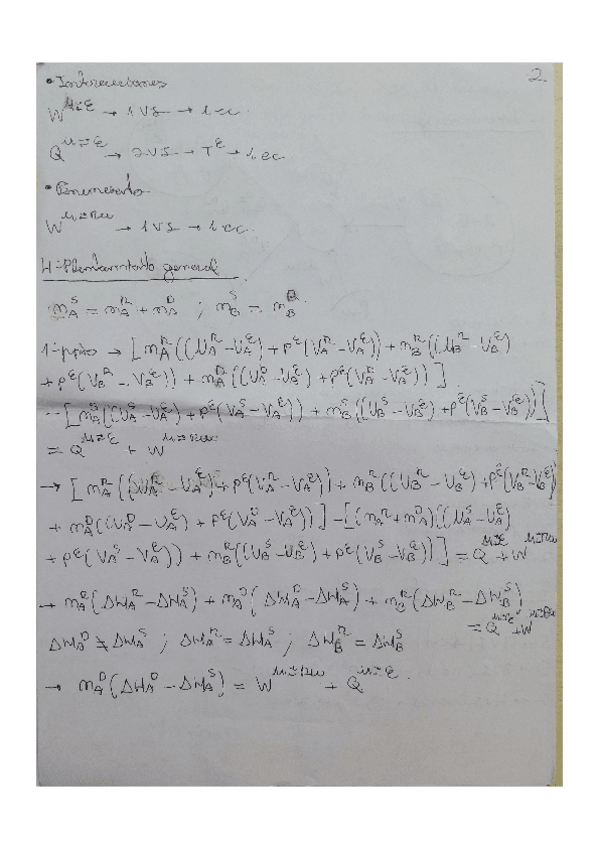 2.
• Interacciones
W^{M⇌E} → 1 VS → 1 ec.
Q^{M⇌E} → 2 VS → T^E → 1 ec.
•
W^{M⇌RW} → 1 VS → 1 ec.
4- general
m_A^S = m_A^R + m_A^D ; m_B^S = m_B^R
→ [m_A^R((U_A^R - U_A^E) + P^E(V_A^R - V_A^E)) + m_B^R((U_B^R - U_B^E)
+ P^E(V_B^R - V_B^E)) + m_A^D((U_A^D - U_A^E) + P^E(V_A^D - V_A^E))]
- [m_A^S((U_A^S - U_A^E) + P^E(V_A^S - V_A^E)) + m_B^S((U_B^S - U_B^E) + P^E(V_B^S - V_B^E))]
= Q^{M⇌E} + W^{M⇌RW}
→ [m_A^R((U_A^R - U_A^E) + P^E(V_A^R - V_A^E)) + m_B^R((U_B^R - U_B^E) + P^E(V_B^R - V_B^E))
+ m_A^D((U_A^D - U_A^E) + P^E(V_A^D - V_A^E))] - [(m_A^R + m_A^D)((U_A^S - U_A^E)
+ P^E(V_A^S - V_A^E)) + m_B^R((U_B^S - U_B^E) + P^E(V_B^S - V_B^E))] = Q^{M⇌E} + W^{M⇌RW}
→ m_A^R(ΔW_A^R - ΔW_A^S) + m_A^D(ΔW_A^D - ΔW_A^S) + m_B^R(ΔW_B^R - ΔW_B^S)
= Q^{M⇌E} + W^{M⇌RW}
ΔW_A^D ≠ ΔW_A^S ; ΔW_A^R = ΔW_A^S ; ΔW_B^R = ΔW_B^S
→ m_A^D(ΔW_A^D - ΔW_A^S) = W^{M⇌RW} + Q^{M⇌E}